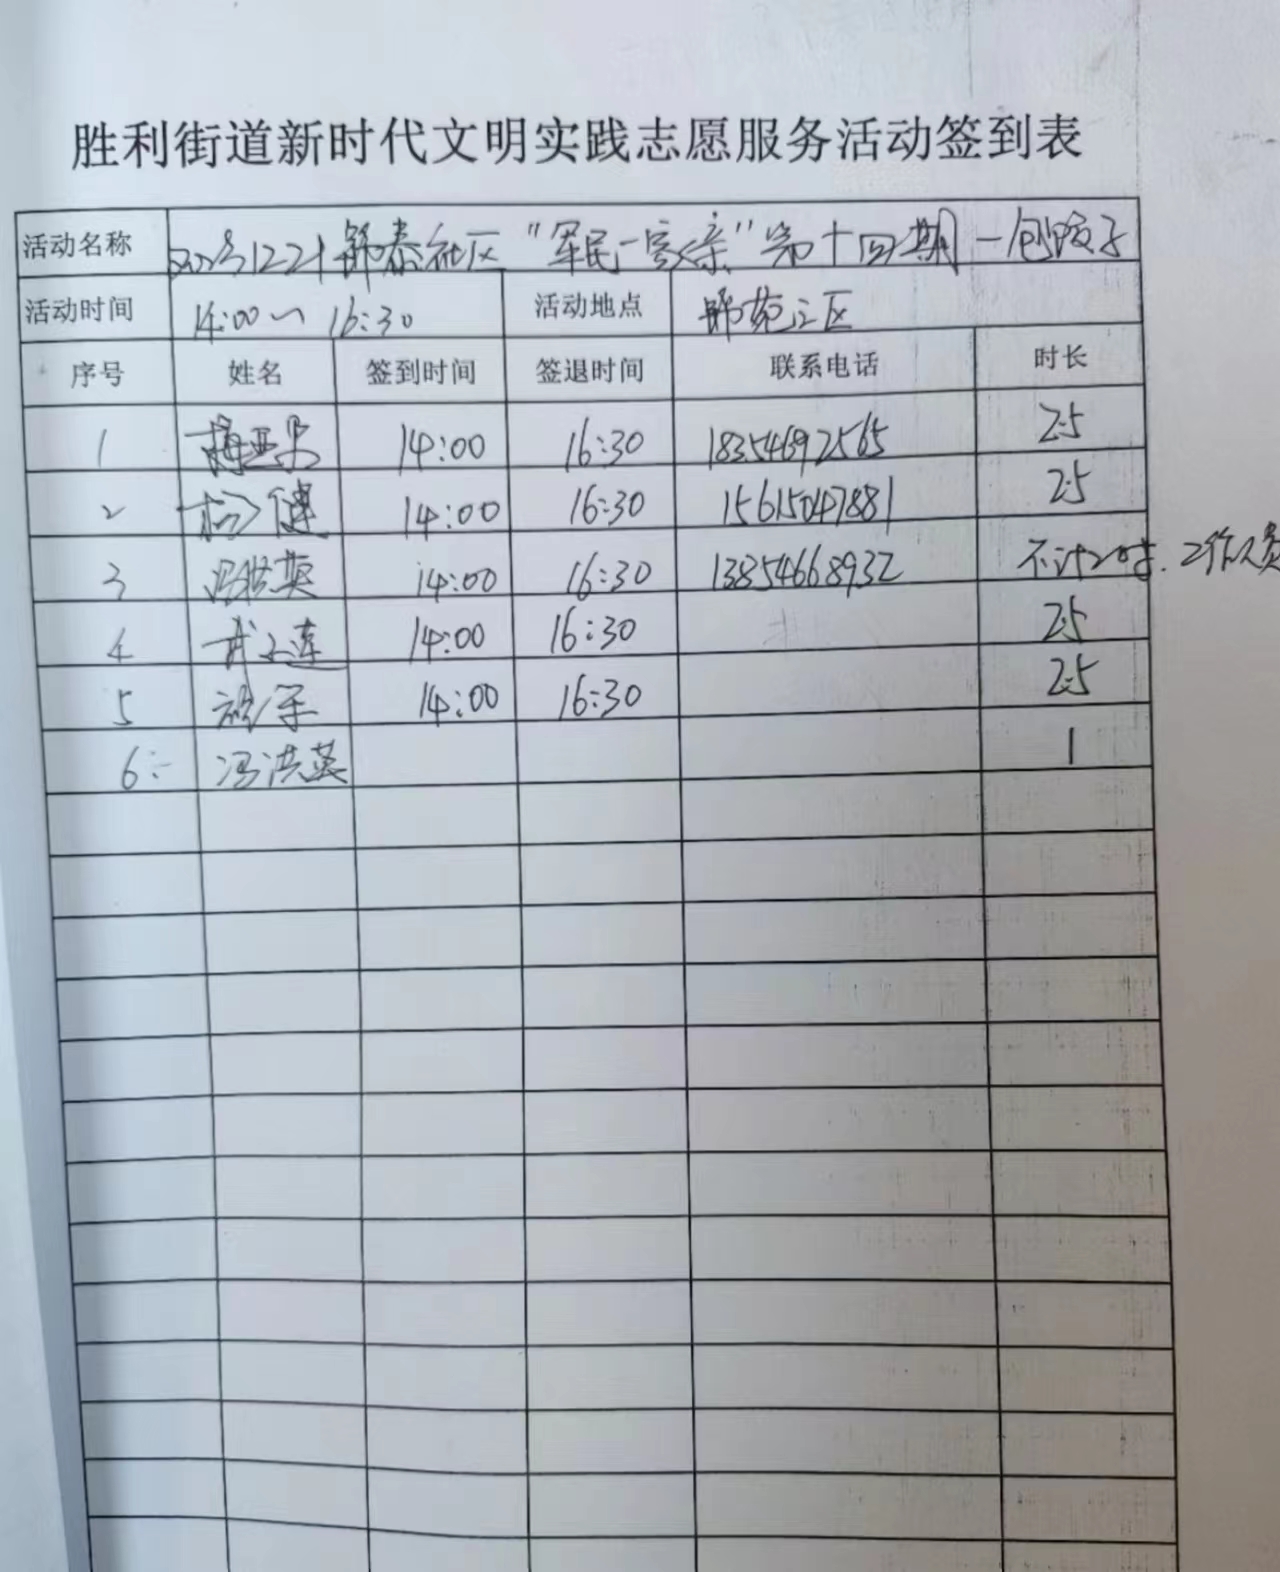 胜利街道新时代文明实践志愿服务活动签到表
活动名称 20231221锦泰社区“军民一家亲”第十四期—包饺子
活动时间 14:00～16:30 活动地点 锦苑三区
序号 姓名 签到时间 签退时间 联系电话 时长
1 14:00 16:30 18354692565 2.5
2 杨健 14:00 16:30 15615047881 2.5
3 冯洪英 14:00 16:30 13854668932 不计工时.工作人员
4 武玉莲 14:00 16:30 2.5
5 14:00 16:30 2.5
6 冯洪英 1